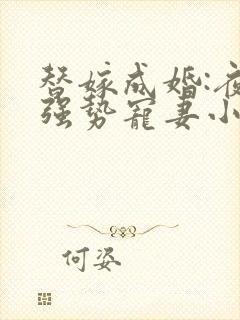 替嫁成婚:夜
强势宠妻小
何姿